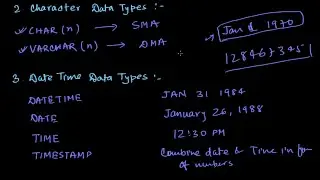 2 Character Data Types :-
✓ CHAR(n) → SMA
✓ VARCHAR(n) → DMA
Jan 1 1970
3 Date Time Data Types :-
DATETIME JAN 31 1984
DATE January 26, 1988
TIME 12:30 PM
TIMESTAMP Combine date & Time in
of numbers